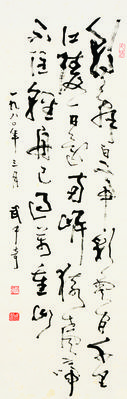 朝辭白帝彩雲間千里
江陵一日還兩岸猿聲啼
不住輕舟已過萬重山
一九八〇年三月 武中奇